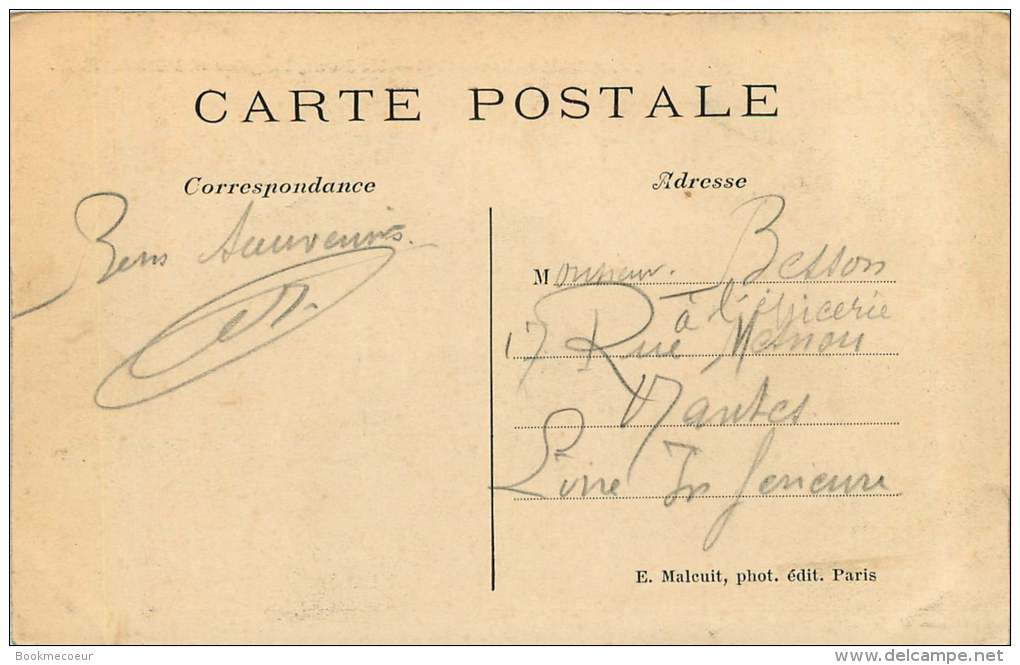 CARTE POSTALE
Correspondance
Bons Souvenirs.
Adresse
Monsieur. Besson
à l'épicerie
17 Rue Menou
Nantes
Loire Inferieure
E. Malcuit, phot. édit. Paris
Bookmecoeur
delcampe.net